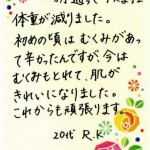 体重が減りました。
初めの頃はむくみがあっ
て辛かったんですが、今は
むくみもとれて、肌が
きれいになりました。
これからも頑張ります。
20代 R.K